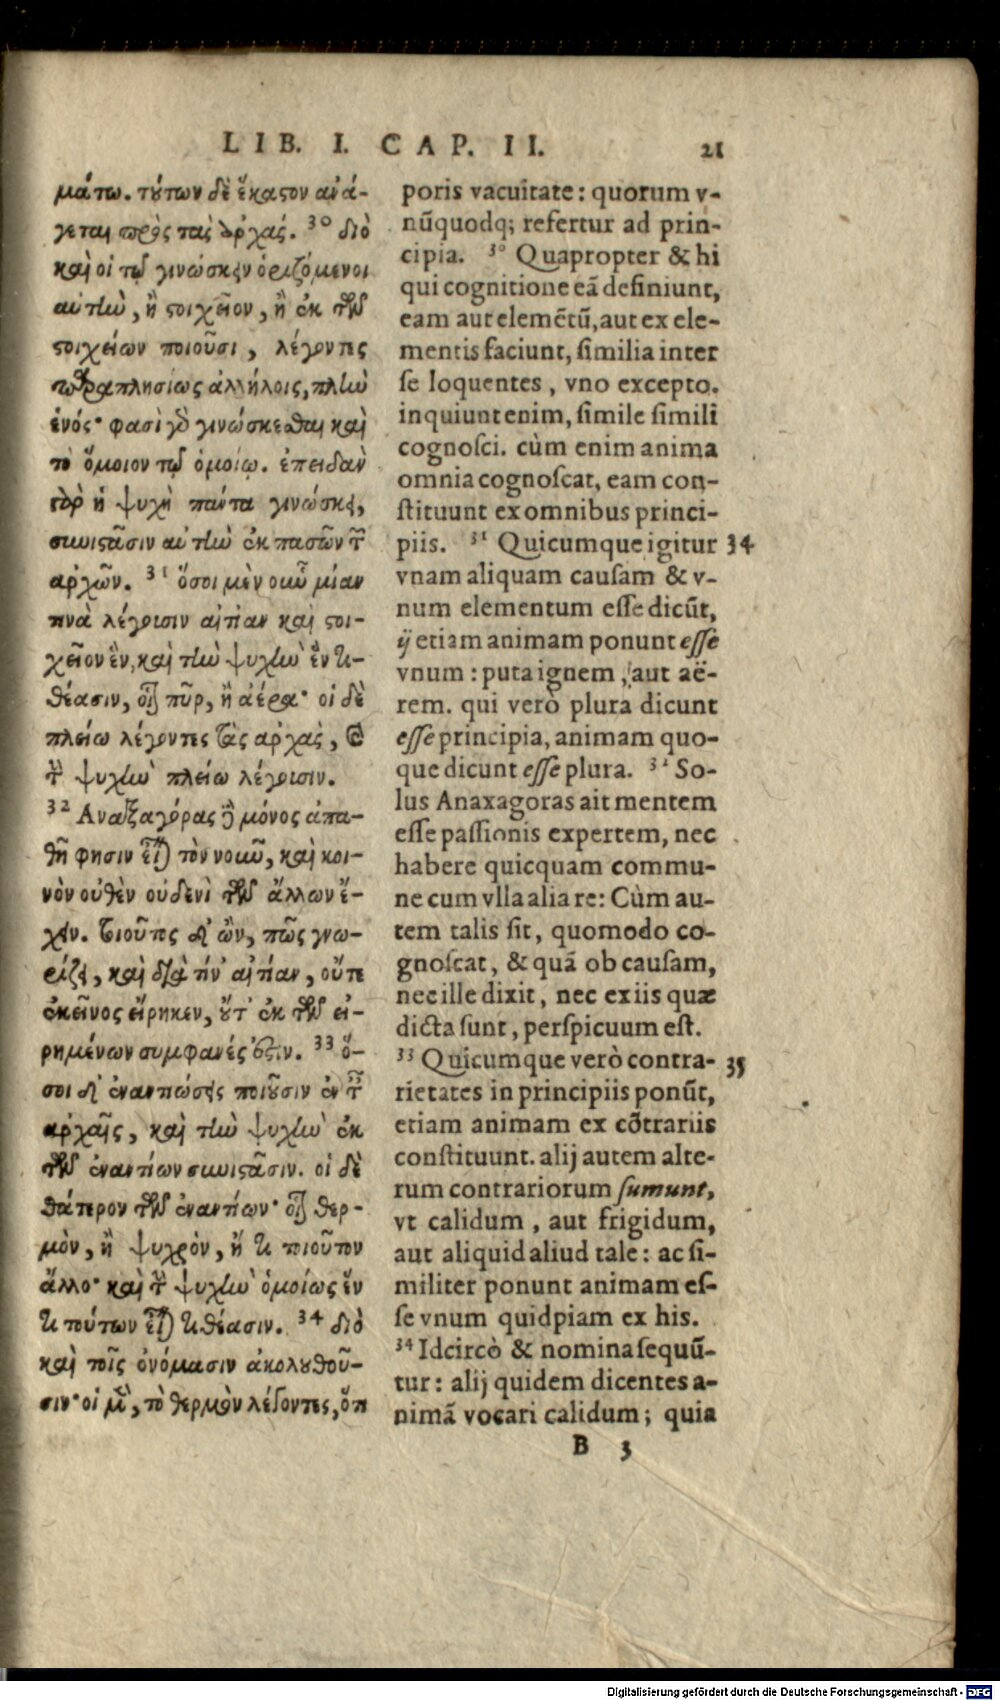 LIB. I. CAP. II. 21
μάτῳ. τούτων δὲ ἕκαστον ἀνά-
γεται πρὸς τὰς ἀρχάς. 30 διὸ
καὶ οἱ τῷ γινώσκειν ὁριζόμενοι
αὐτὴν, ἢ στοιχεῖον, ἢ ἐκ τῶν
στοιχείων ποιοῦσι, λέγοντες
παραπλησίως ἀλλήλοις, πλὴν
ἑνός· φασὶ γὰρ γινώσκεσθαι καὶ
τὸ ὅμοιον τῷ ὁμοίῳ. ἐπειδὰν
γὰρ ἡ ψυχὴ πάντα γινώσκει,
συνιστᾶσιν αὐτὴν ἐκ πασῶν τῶν
ἀρχῶν. 31 ὅσοι μὲν οὖν μίαν
τινὰ λέγουσιν αἰτίαν καὶ στοι-
χεῖον ἓν, καὶ τὴν ψυχὴν ἓν τι-
θέασιν, οἷον πῦρ, ἢ ἀέρα· οἱ δὲ
πλείω λέγοντες τὰς ἀρχάς, καὶ
τὴν ψυχὴν πλείω λέγουσιν.
32 Αναξαγόρας δὲ μόνος ἀπα-
θῆ φησιν εἶναι τὸν νοῦν, καὶ κοι-
νὸν οὐθὲν οὐδενὶ τῶν ἄλλων ἔ-
χειν. τοιοῦτος δ' ὢν, πῶς γνω-
ρίζει, καὶ διὰ τίν' αἰτίαν, οὔτε
ἐκεῖνος εἴρηκεν, οὔτ' ἐκ τῶν εἰ-
ρημένων συμφανές ἐστιν. 33 ὅ-
σοι δ' ἐναντιώσεις ποιοῦσιν ἐν ταῖς
ἀρχαῖς, καὶ τὴν ψυχὴν ἐκ
τῶν ἐναντίων συνιστᾶσιν. οἱ δὲ
θάτερον τῶν ἐναντίων· οἷον θερ-
μὸν, ἢ ψυχρὸν, ἤ τι τοιοῦτον
ἄλλο· καὶ τὴν ψυχὴν ὁμοίως ἕν
τι τούτων εἶναι τιθέασιν. 34 διὸ
καὶ τοῖς ὀνόμασιν ἀκολουθοῦ-
σιν· οἱ μὲν, τὸ θερμὸν λέγοντες, ὅτι
poris vacuitate: quorum v-
nũquodq; refertur ad prin-
cipia. 30 Quapropter & hi
qui cognitione eã definiunt,
eam aut elemẽtũ, aut ex ele-
mentis faciunt, similia inter
se loquentes, vno excepto.
inquiunt enim, simile simili
cognosci. cùm enim anima
omnia cognoscat, eam con-
stituunt ex omnibus princi-
piis. 31 Quicumque igitur 34
vnam aliquam causam & v-
num elementum esse dicũt,
ij etiam animam ponunt esse
vnum: puta ignem, aut aë-
rem. qui verò plura dicunt
esse principia, animam quo-
que dicunt esse plura. 32 So-
lus Anaxagoras ait mentem
esse passionis expertem, nec
habere quicquam commu-
ne cum vlla alia re: Cùm au-
tem talis sit, quomodo co-
gnoscat, & quã ob causam,
nec ille dixit, nec ex iis quæ
dicta sunt, perspicuum est.
33 Quicumque verò contra- 35
rietates in principiis ponũt,
etiam animam ex cõtrariis
constituunt. alij autem alte-
rum contrariorum sumunt,
vt calidum, aut frigidum,
aut aliquid aliud tale: ac si-
militer ponunt animam es-
se vnum quidpiam ex his.
34 Idcircò & nomina sequũ-
tur: alij quidem dicentes a-
nimã vocari calidum; quia
B 3
Digitalisierung gefördert durch die Deutsche Forschungsgemeinschaft - DFG